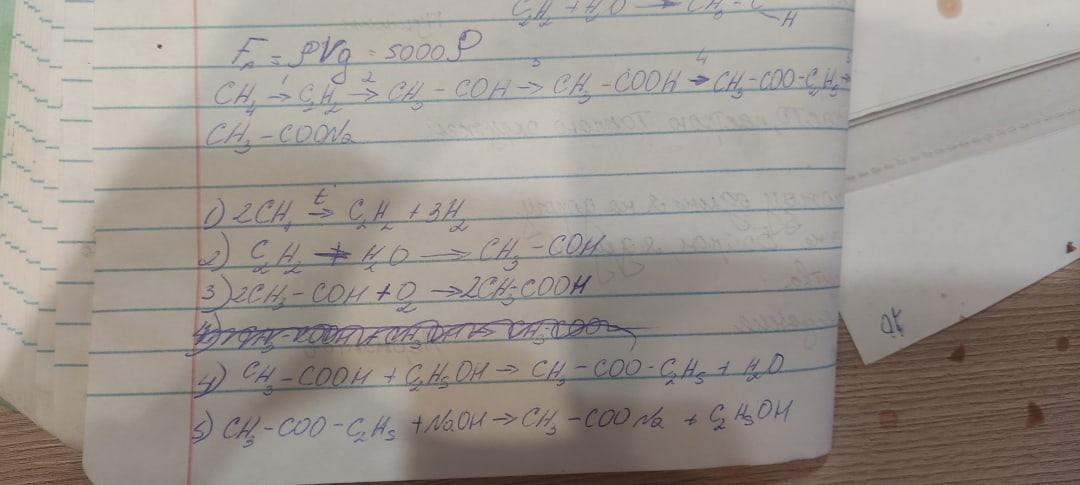 C₂H₂ + H₂O → CH₃ - C - H
Fₐ = ρVg = 5000ρ
CH₄ →¹ C₂H₂ →² CH₃ - COH →³ CH₃ - COOH →⁴ CH₃-COO-C₂H₅ →⁵
CH₃ - COONa
1) 2CH₄ →ᵗ C₂H₂ + 3H₂
2) C₂H₂ + H₂O → CH₃ - COH
3) 2CH₃ - COH + O₂ → 2CH₃COOH
4) CH₃ - COOH + C₂H₅OH → CH₃ - COO - C₂H₅ + H₂O
5) CH₃ - COO - C₂H₅ + NaOH → CH₃ - COONa + C₂H₅OH